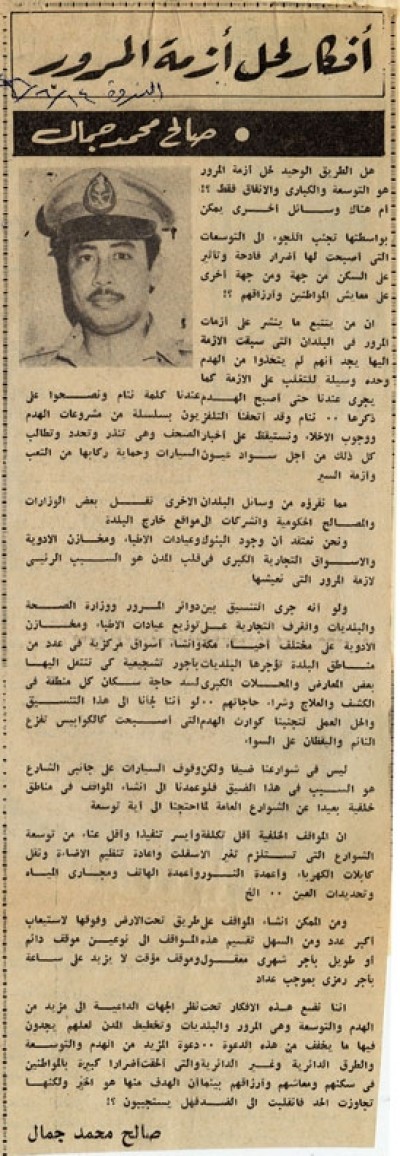 أفكار لحل أزمة المرور
الندوة
صالح محمد جمال
هل الطريق الوحيد لحل أزمة المرور
هو التوسعة والكبارى والانفاق فقط ؟!
أم هناك وسائل أخرى يمكن
بواسطتها تجنب اللجوء الى التوسعات
التى أصبحت لها أضرار فادحة وتأثير
على السكن من جهة ومن جهة أخرى
على معايش المواطنين وأرزاقهم ؟!
ان من يتتبع ما ينشر على أزمات
المرور فى البلدان التى سبقت الازمة
اليها يجد أنهم لم يتخذوا من الهدم
وحده وسيلة للتغلب على الازمة كما
يجرى عندنا حتى أصبح الهدم عندنا كلمة ننام ونصحوا على
ذكرها ٠٠ ننام وقد أتحفنا التلفزيون بسلسلة من مشروعات الهدم
ووجوب الاخلاء ونستيقظ على أخبار الصحف وهى تنذر وتحدد وتطالب
كل ذلك من أجل سواد عيون السيارات وحماية ركابها من التعب
وأزمة السير
مما نقرؤه من وسائل البلدان الاخرى نقل بعض الوزارات
والمصالح الحكومية والشركات الى مواقع خارج البلدة
ونحن نعتقد أن وجود البنوك وعيادات الاطباء ومخازن الادوية
والاسواق التجارية الكبرى فى قلب المدن هو السبب الرئيسى
لازمة المرور التى نعيشها
ولو أنه جرى التنسيق بين دوائر المرور ووزارة الصحة
والبلديات والغرف التجارية على توزيع عيادات الاطباء ومخازن
الادوية على مختلف أحياء مكة وانشاء أسواق مركزية فى عدد من
مناطق البلدة تؤجرها البلديات بأجور تشجيعية كى تنتقل اليها
بعض المعارض والمحلات الكبرى لسد حاجة سكان كل منطقة فى
الكشف والعلاج وشراء حاجاتهم ٠٠ لو أننا لجأنا الى هذا التنسيق
والحل العملى لتجنبنا كوارث الهدم التى أصبحت كالكوابيس تفزع
النائم واليقظان على السواء
ليس فى شوارعنا ضيقا ولكن وقوف السيارات على جانبى الشارع
هو السبب فى هذا الضيق فلو عمدنا الى انشاء المواقف فى مناطق
خلفية بعيدا عن الشوارع العامة لما احتجنا الى أية توسعة
ان المواقف الخلفية أقل تكلفة وأيسر تنفيذا وأقل عناء من توسعة
الشوارع التى تستلزم تغيير الاسفلت واعادة تنظيم الاضاءة ونقل
كابلات الكهرباء وأعمدة النور وأعمدة الهاتف ومجارى المياه
وتحديدات العين ٠٠ الخ
ومن الممكن انشاء المواقف على طريق تحت الارض وفوقها لاستيعاب
أكبر عدد ومن السهل تقسيم هذه المواقف الى نوعين موقف دائم
أو طويل بأجر شهرى معقول وموقف مؤقت لا يزيد على ساعة
بأجر رمزى بموجب عداد
اننا نضع هذه الافكار تحت نظر الجهات الداعية الى مزيد من
الهدم والتوسعة وهى المرور والبلديات وتخطيط المدن لعلهم يجدون
فيها ما يخفف من هذه الدعوة ٠٠ دعوة المزيد من الهدم والتوسعة
والطرق الدائرية وغير الدائرية والتى ألحقت أضرارا كبيرة بالمواطنين
فى سكنهم ومعاشهم وأرزاقهم بينما أن الهدف منها هو الخير ولكنها
تجاوزت الحد فانقلبت الى الضد فهل يستجيبون ؟!
صالح محمد جمال